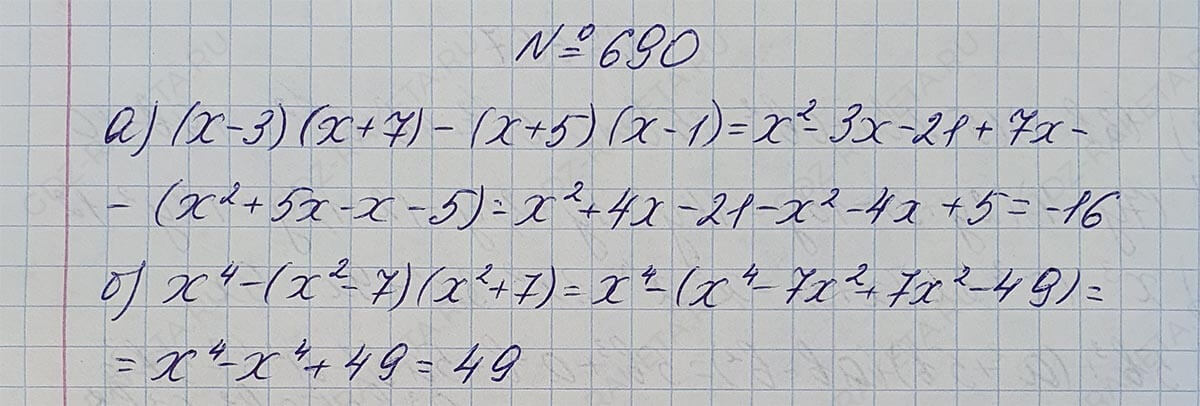 №690
а) (x-3)(x+7)-(x+5)(x-1)=x²-3x-21+7x-
-(x²+5x-x-5)=x²+4x-21-x²-4x+5=-16
б) x⁴-(x²-7)(x²+7)=x⁴-(x⁴-7x²+7x²-49)=
=x⁴-x⁴+49=49